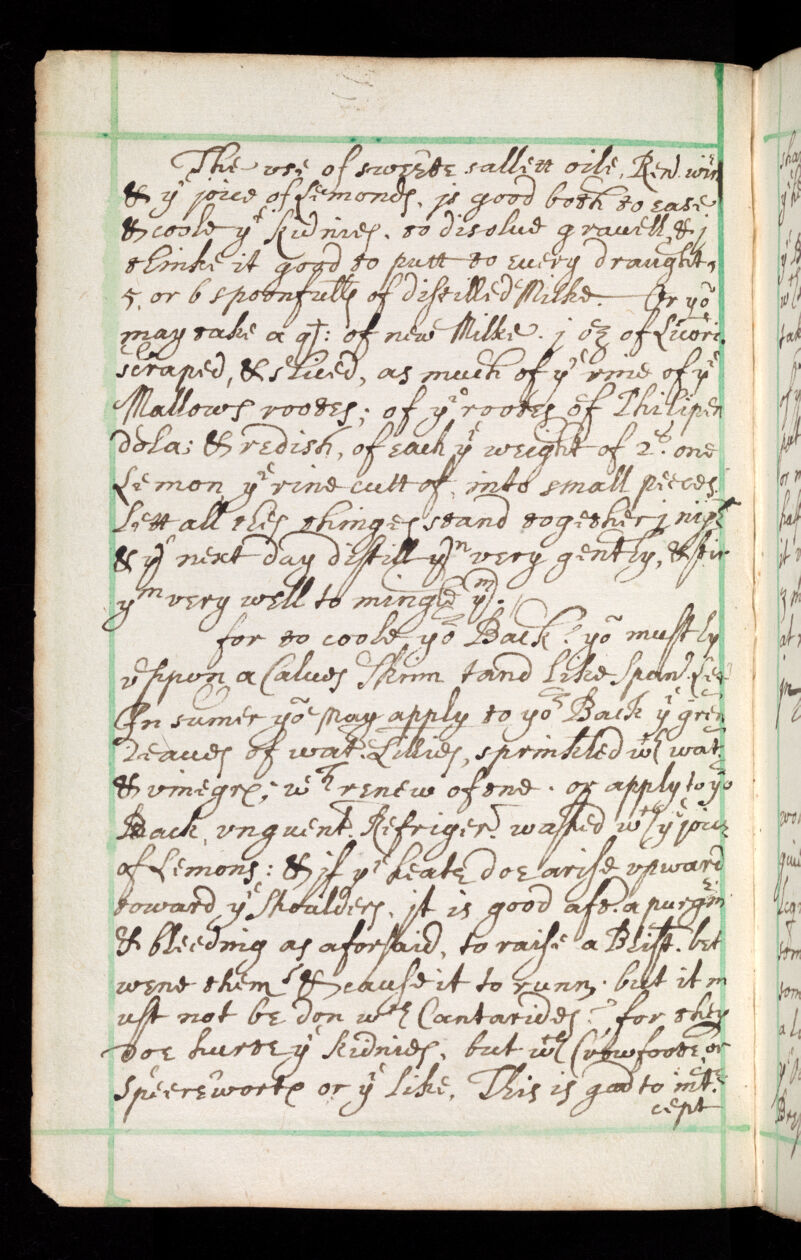 The vse of sweete sallett oile, Ren. wine
& yͤ joice of Lemonds, js good both to ease
& coole yͤ Kidnies, to disolue grauell & j
thinke it good to putt to euery draught,
5, or 6 spoonfulls of distilled Milke. Or yoͧ
may take a qt: of new Milke. j oz of Licori.
scraped, & sliced, as much of yͤ rine of yͤ
Mallows rootes; of yͤ rootes of Philipen
dola; & redish, of each yͤ weight of 2s. one
Lemon yͤ rine cutt of, into small peeces.
Lett all thes thinges stand together j night
& yͤ next day distill yᵐ very gently, & stir
yᵐ very well to mingle yᵐ.
for to coole yoͬ Back, yoͧ must ly
vppon a Calues Skinn tand like Span. Lea
In sumer yoͧ May apply to yoͬ Back yͤ gren
Leaues of wat. Lillies, sprinkled wᵗʰ wat.
& vinegre; wᶜʰ renew ofene. or apply to yoͬ
Back, vnguent. Refriger. washed wᵗʰ yͤ joice
of Lemons: & if yͤ heate doe arise vpward
toward yͤ Shoulders, jt is good aft. a purgin
& bleeding as aforsaid, to raise a Blist. bet
wene them, & cause it to runn, but it m
ust not be don wᵗʰ Cantarides, for they
doe hurte yͤ kidnies, but wᵗʰ Crowfoote, or
Speerewort or yͤ like. This is good to int.
cept